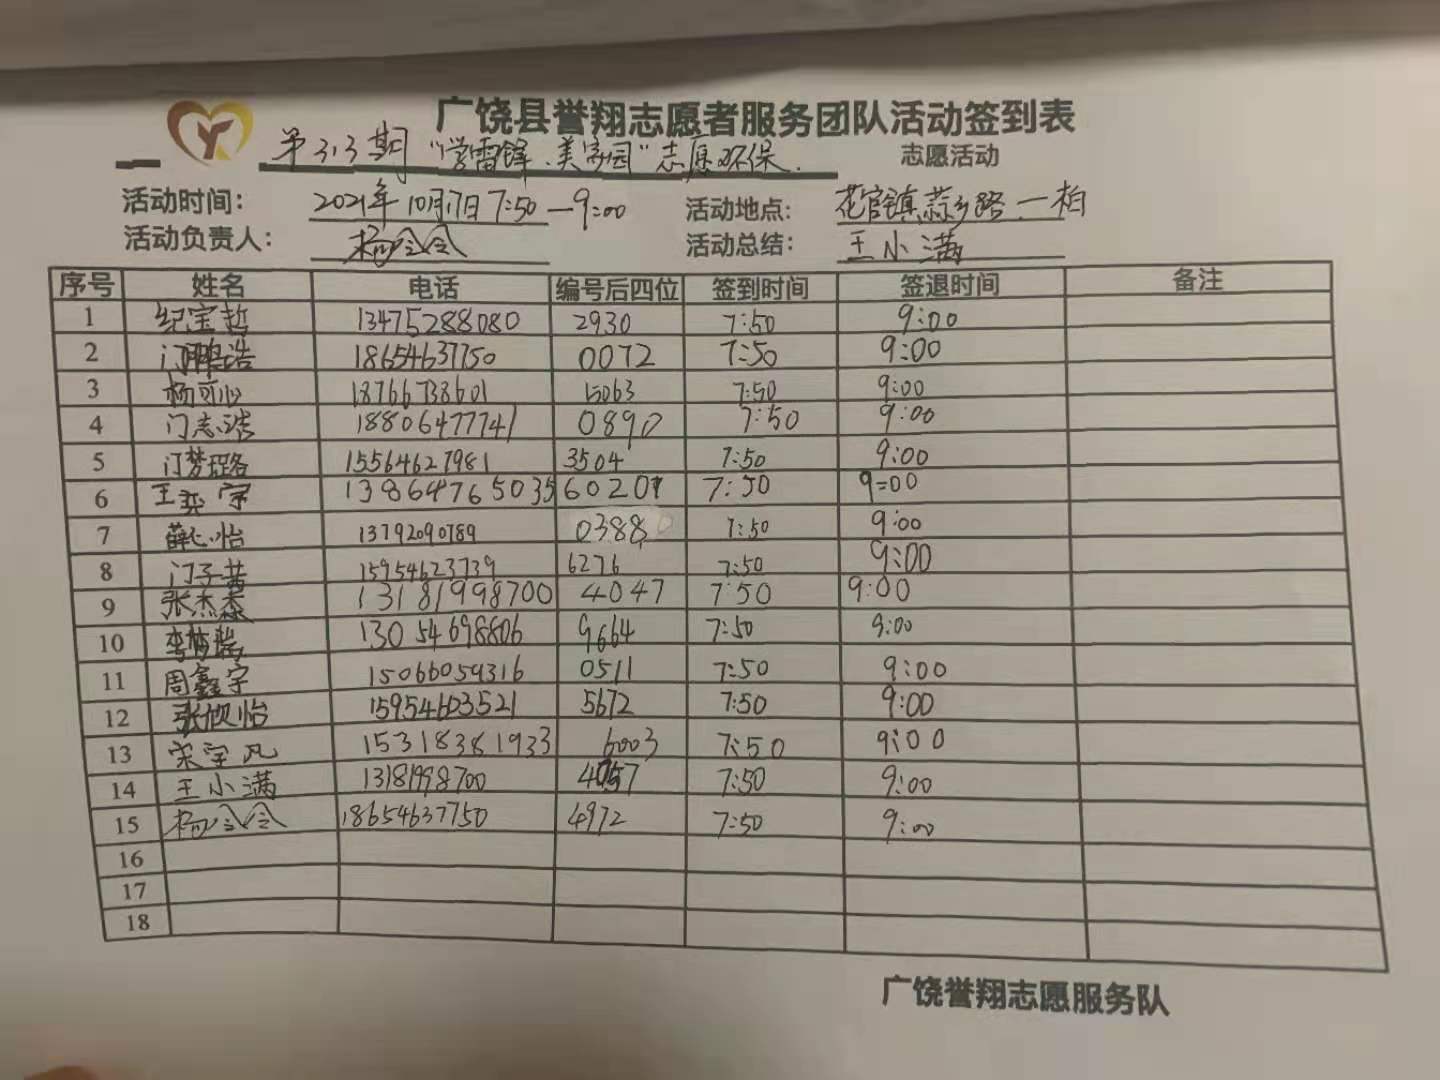 广饶县誉翔志愿者服务团队活动签到表
第313期“学雷锋、美家园”志愿环保. 志愿活动
活动时间: 2021年10月17日 7:50—9:00 活动地点: 花官镇蒜乡路.一柏
活动负责人: 杨会会 活动总结: 王小满
序号 姓名 电话 编号后四位 签到时间 签退时间 备注
1 纪宝哲 13475288080 2930 7:50 9:00
2 门鹏浩 18654637750 0072 7:50 9:00
3 杨可心 18766738601 5063 7:50 9:00
4 门志浩 18806477741 0890 7:50 9:00
5 门梦璐 15564627981 3504 7:50 9:00
6 王奕宁 13864765035 6020 7:50 9=00
7 薛心怡 13792090789 0388 7:50 9:00
8 门子茜 15954623739 6276 7:50 9:00
9 张杰森 13181998700 4047 7:50 9:00
10 李梦瑶 13054698806 9664 7:50 9:00
11 周鑫宇 15066059316 0511 7:50 9:00
12 张欣怡 15954603521 5672 7:50 9:00
13 宋宇凡 15318381933 6003 7:50 9:00
14 王小满 13181998700 4057 7:50 9:00
15 杨会会 18654637750 4972 7:50 9:00
16
17
18
广饶誉翔志愿服务队